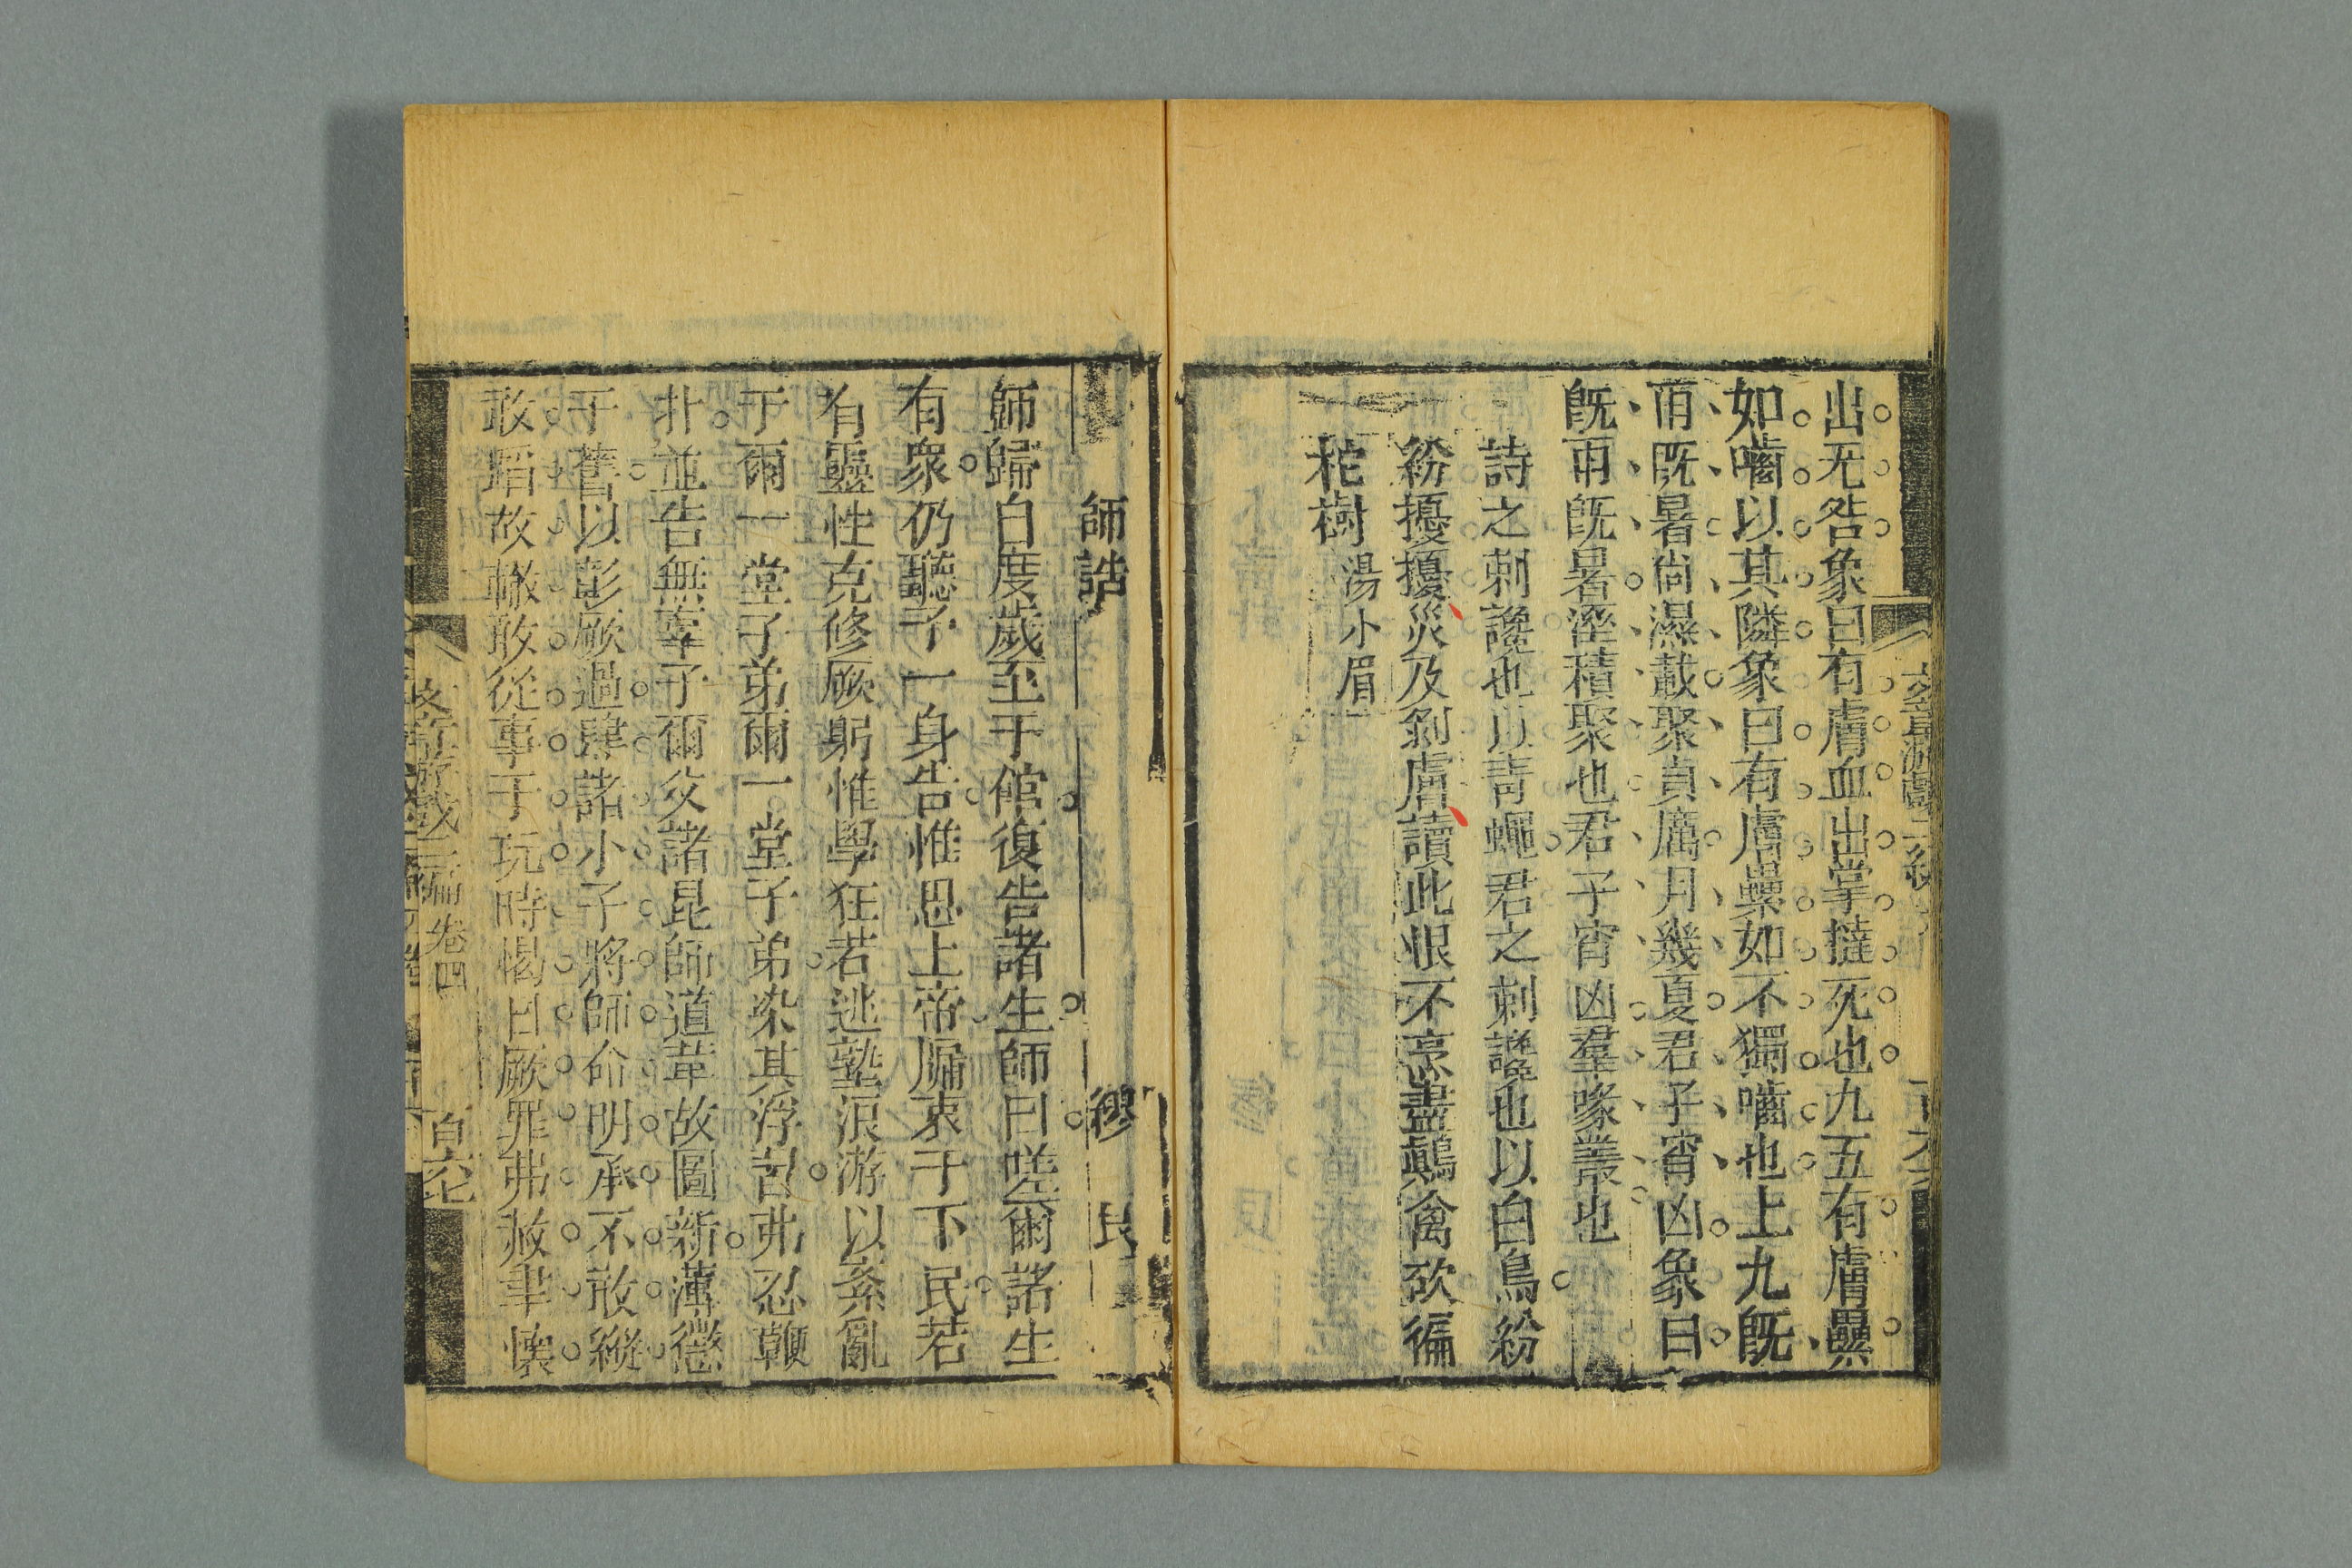 出无咎象曰有膚血出掌撻死也九五有膚爨
如嚙以其隣象曰有膚爨如不獨嚙也上九旣
雨旣暑尙濕載聚貞厲月幾夏君子宵凶象曰
旣雨旣暑溼積聚也君子宵凶羣喙叢也
詩之刺讒也以靑蠅君之刺讒也以白鳥紛
紛擾擾災及剝膚讀此恨不烹盡鷏禽砍徧
秺樹 湯小眉
師誥 繆艮
師歸自度歲至于館復告諸生師曰嗟爾諸生
有衆仍聽予一身告惟思上帝牖衷于下民若
有靈性克修厥躬惟學狂若逃塾浪游以紊亂
于爾一堂子弟爾一堂子弟染其浮習弗忍鞭
扑並告無辜子爾父諸昆師道葦故圖新薄懲
于舊以彭厥過肆諸小子將師命明承不敢縱
敢蹈故轍敢從事于玩時愒日厥罪弗赦聿懷
文章游戲三編 卷四 百六七